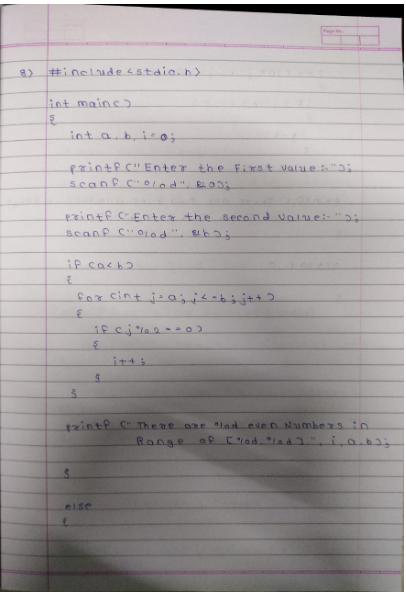 Page No.
8) #include <stdio.h>
int main()
{
int a, b, i=0;
printf ("Enter the First value:-");
scanf ("%d", &a);
printf ("Enter the second value:-");
scanf ("%d", &b);
if (a<b)
{
for (int j=a; j<=b; j++)
{
if (j%2==0)
{
i++;
}
}
printf ("There are %d even Numbers in
Range of [%d, %d]", i, a, b);
}
else
{